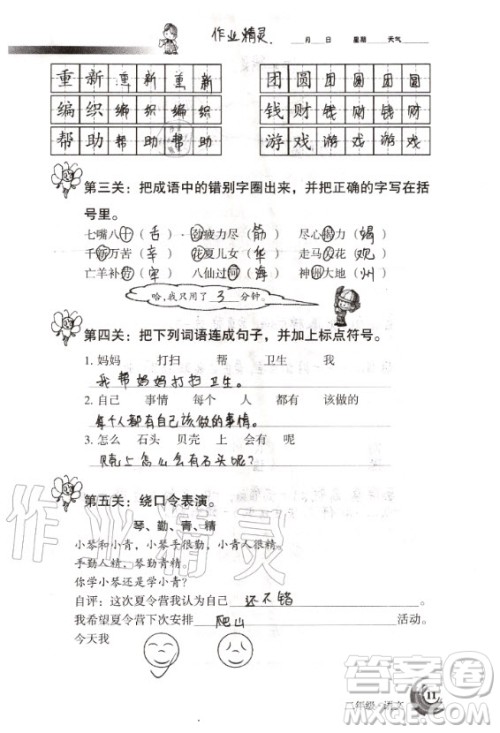 作业精灵
月 日 星期 天气
重新重新重新 团圆团圆团圆
编织编织编织 钱财钱财钱财
帮助帮助帮助 游戏游戏游戏
第三关：把成语中的错别字圈出来，并把正确的字写在括
号里。
七嘴八十（舌） 疲力尽（筋） 尽心力（竭）
千万苦（辛） 花夏儿女（华） 走马花（观）
亡羊补（牢） 八仙过（海） 神大地（州）
哈，我只用了3分钟。
第四关：把下列词语连成句子，并加上标点符号。
1. 妈妈 打扫 帮 卫生 我
我帮妈妈打扫卫生。
2. 自己 事情 每个 人 都有 该做的
每个人都有自己该做的事情。
3. 怎么 石头 贝壳 上 会有 呢
贝壳上怎么会有石头呢？
第五关：绕口令表演。
琴、勤、青、精
小琴和小青，小琴手很勤，小青人很精。
手勤人精，琴勤青精。
你学小琴还是学小青？
自评：这次夏令营我认为自己 还不错
我希望夏令营下次安排 爬山 活动。
今天我
作业精灵
二年级·语文 11
答案卷